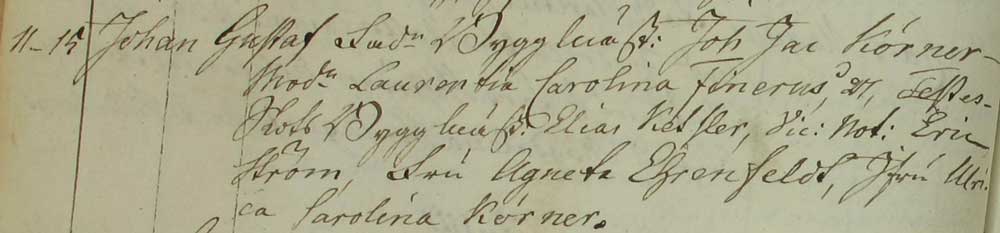 11_15 Johan Gustaf Fadr Byggmäst: Joh Jac Körner_
Modr Laurentia Carolina Finerus, 27, Testes_
Slots Byggmäst: Elias Kessler, Vic: Not: Eric
Ström, Fru Agneta Ehrenfeldt, Jfru Ulri:
ca Carolina Körner.